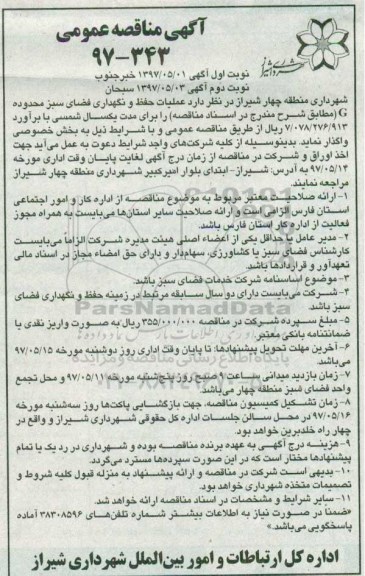 آگهی مناقصه عمومی
۹۷-۳۴۳
شهرداری شیراز
نوبت اول آگهی ۱۳۹۷/۰۵/۰۱ خبرجنوب
نوبت دوم آگهی ۱۳۹۷/۰۵/۰۳ سبحان
شهرداری منطقه چهار شیراز در نظر دارد عملیات حفظ و نگهداری فضای سبز محدوده
G (مطابق شرح مندرج در اسناد مناقصه) را برای مدت یکسال شمسی با برآورد
۷/۰۷۸/۲۷۶/۹۱۳ ریال از طریق مناقصه عمومی و با شرایط ذیل به بخش خصوصی
واگذار نماید. بدینوسیله از کلیه شرکت‌های واجد شرایط دعوت به عمل می‌آید جهت
اخذ اوراق و شرکت در مناقصه از زمان درج آگهی لغایت پایان وقت اداری مورخه
۹۷/۰۵/۱۴ به آدرس: شیراز- ابتدای بلوار امیرکبیر شهرداری منطقه چهار شیراز
مراجعه نمایند.
۱- ارائه صلاحیت معتبر مربوط به موضوع مناقصه از اداره کار و امور اجتماعی
استان فارس الزامی است وارائه صلاحیت سایر استان‌ها می‌بایست به همراه مجوز
فعالیت از اداره کار استان فارس باشد.
۲- مدیر عامل یا حداقل یکی از اعضاء اصلی هیئت مدیره شرکت الزاماً می‌بایست
کارشناس فضای سبز یا کشاورزی، سهام‌دار و دارای حق امضاء مجاز در اسناد مالی
تعهدآور و قراردادها باشد.
۳- موضوع اساسنامه شرکت خدمات فضای سبز باشد.
۴- شرکت می‌بایست دارای دو سال سابقه مرتبط در زمینه حفظ و نگهداری فضای
سبز باشد.
۵- مبلغ سپرده شرکت در مناقصه ۳۵۵/۰۰۰/۰۰۰ ریال به صورت واریز نقدی یا
ضمانتنامه بانکی معتبر.
۶- آخرین مهلت تحویل پیشنهادها: تا پایان وقت اداری روز دوشنبه مورخه ۹۷/۰۵/۱۵
می‌باشد.
۷- زمان بازدید میدانی ساعت ۹ صبح روز پنج‌شنبه مورخه ۹۷/۰۵/۱۱ و محل تجمع
واحد فضای سبز منطقه چهار می‌باشد.
۸- زمان تشکیل کمیسیون مناقصه، جهت بازگشایی پاکت‌ها روز سه‌شنبه مورخه
۹۷/۰۵/۱۶ در محل سالن جلسات اداره کل حقوقی شهرداری شیراز و واقع در
چهار راه خلدبرین خواهد بود.
۹- هزینه درج آگهی به عهده برنده مناقصه بوده و شهرداری در رد یک یا تمام
پیشنهادها مختار است که در این صورت سپرده‌ها مسترد می‌گردد.
۱۰- بدیهی است شرکت در مناقصه و ارائه پیشنهاد به منزله قبول کلیه شروط و
تصمیمات متخذه شهرداری خواهد بود.
۱۱- سایر شرایط و مشخصات در اسناد مناقصه ارائه خواهد شد.
«ضمناً در صورت نیاز به اطلاعات بیشتر شماره تلفن‌های ۳۸۳۰۸۵۹۶ آماده
پاسخگویی می‌باشد.»
اداره کل ارتباطات و امور بین‌الملل شهرداری شیراز
ParsNamadData